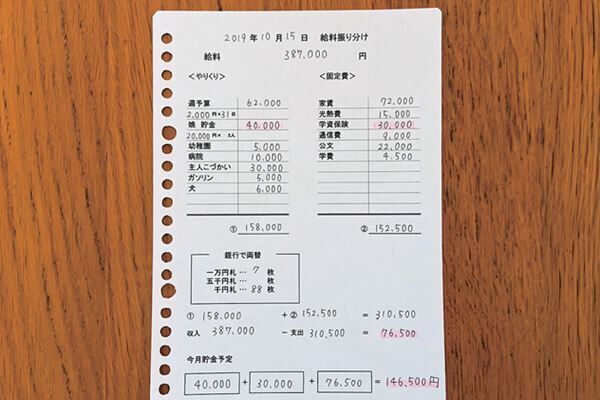 2019年10月15日 給料振り分け
給料 387,000 円
<やりくり>
週予算 62,000
2,000円×31日
娘 貯金 40,000
20,000円× 2人
幼稚園 5,000
病院 10,000
主人こづかい 30,000
ガソリン 5,000
犬 6,000
① 158,000
<固定費>
家賃 72,000
光熱費 15,000
学資保険 30,000
通信費 9,000
公文 22,000
学費 4,500
② 152,500
銀行で両替
一万円札… 7 枚
五千円札… 枚
千円札… 88 枚
① 158,000 +② 152,500 = 310,500
収入 387,000 −支出 310,500 = 76,500
今月貯金予定
40,000 + 30,000 + 76,500 = 146,500円